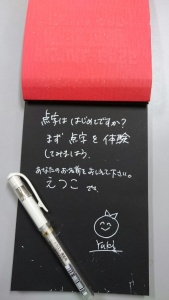 点字は はじめてですか?
まず 点字 を 体験
してみましょう.
あなたのお名前をおしえて下さい。
えつこ です.
Yuki